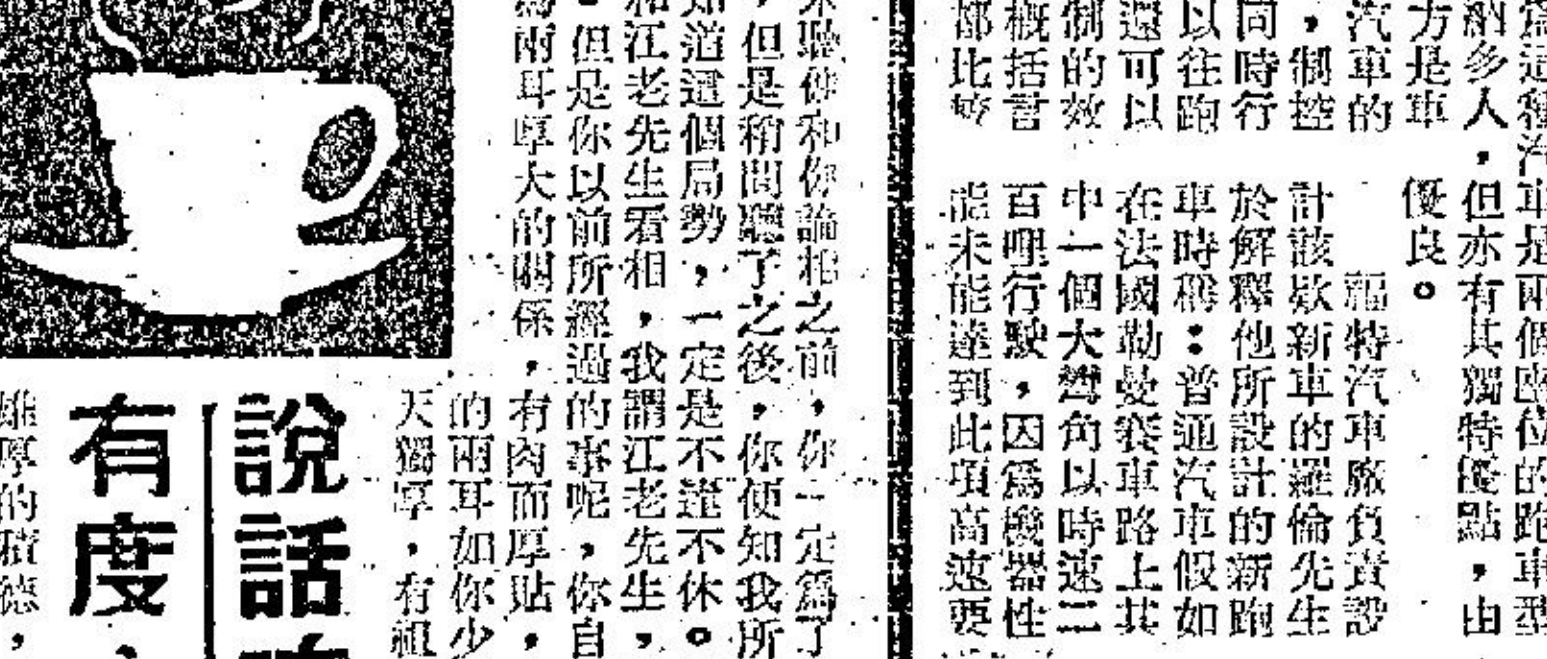 爲這種汽車是兩個座位的跑車型
納多人，但亦有其獨特優點，由
方是車
汽車的
，制控
同時行
以往跑
還可以
制的效
概括言
都比較
優良。
福特汽車廠負責設
計該款新車的羅倫先生
於解釋他所設計的新跑
車時稱：普通汽車假如
在法國勒曼賽車路上其
中一個大彎角以時速二
百哩行駛，因爲機器性
能未能達到此項高速要
聽你和你論相之前，你一定爲了
，但是稍間聽了之後，你便知我所
知道這個局勢，一定是不達不休。
和江老先生看相，我謂江老先生，
。但是你以前所經過的事呢，你自
爲兩耳厚大的關係，有肉而厚貼，
的兩耳如你少
天獨厚，有祖
說話
有度
雄厚的積德，